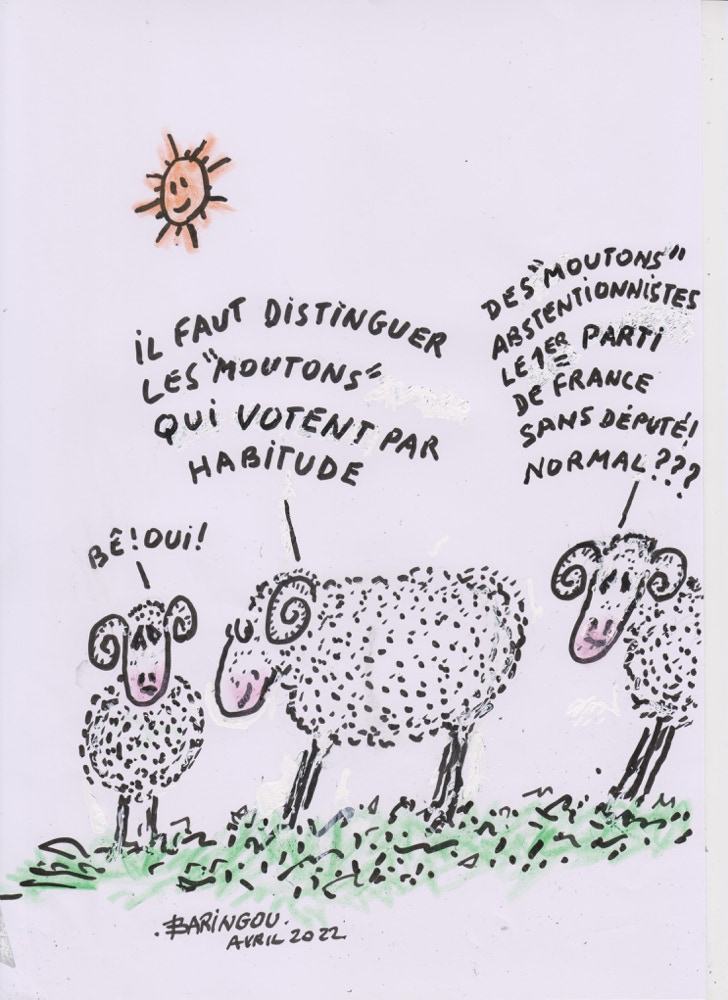 IL FAUT DISTINGUER
LES "MOUTONS"
QUI VOTENT PAR
HABITUDE
DES "MOUTONS"
ABSTENTIONNISTES
LE 1ER PARTI
DE FRANCE
SANS DÉPUTÉ!
NORMAL???
BÊ! OUI!
BARINGOU.
AVRIL 2022